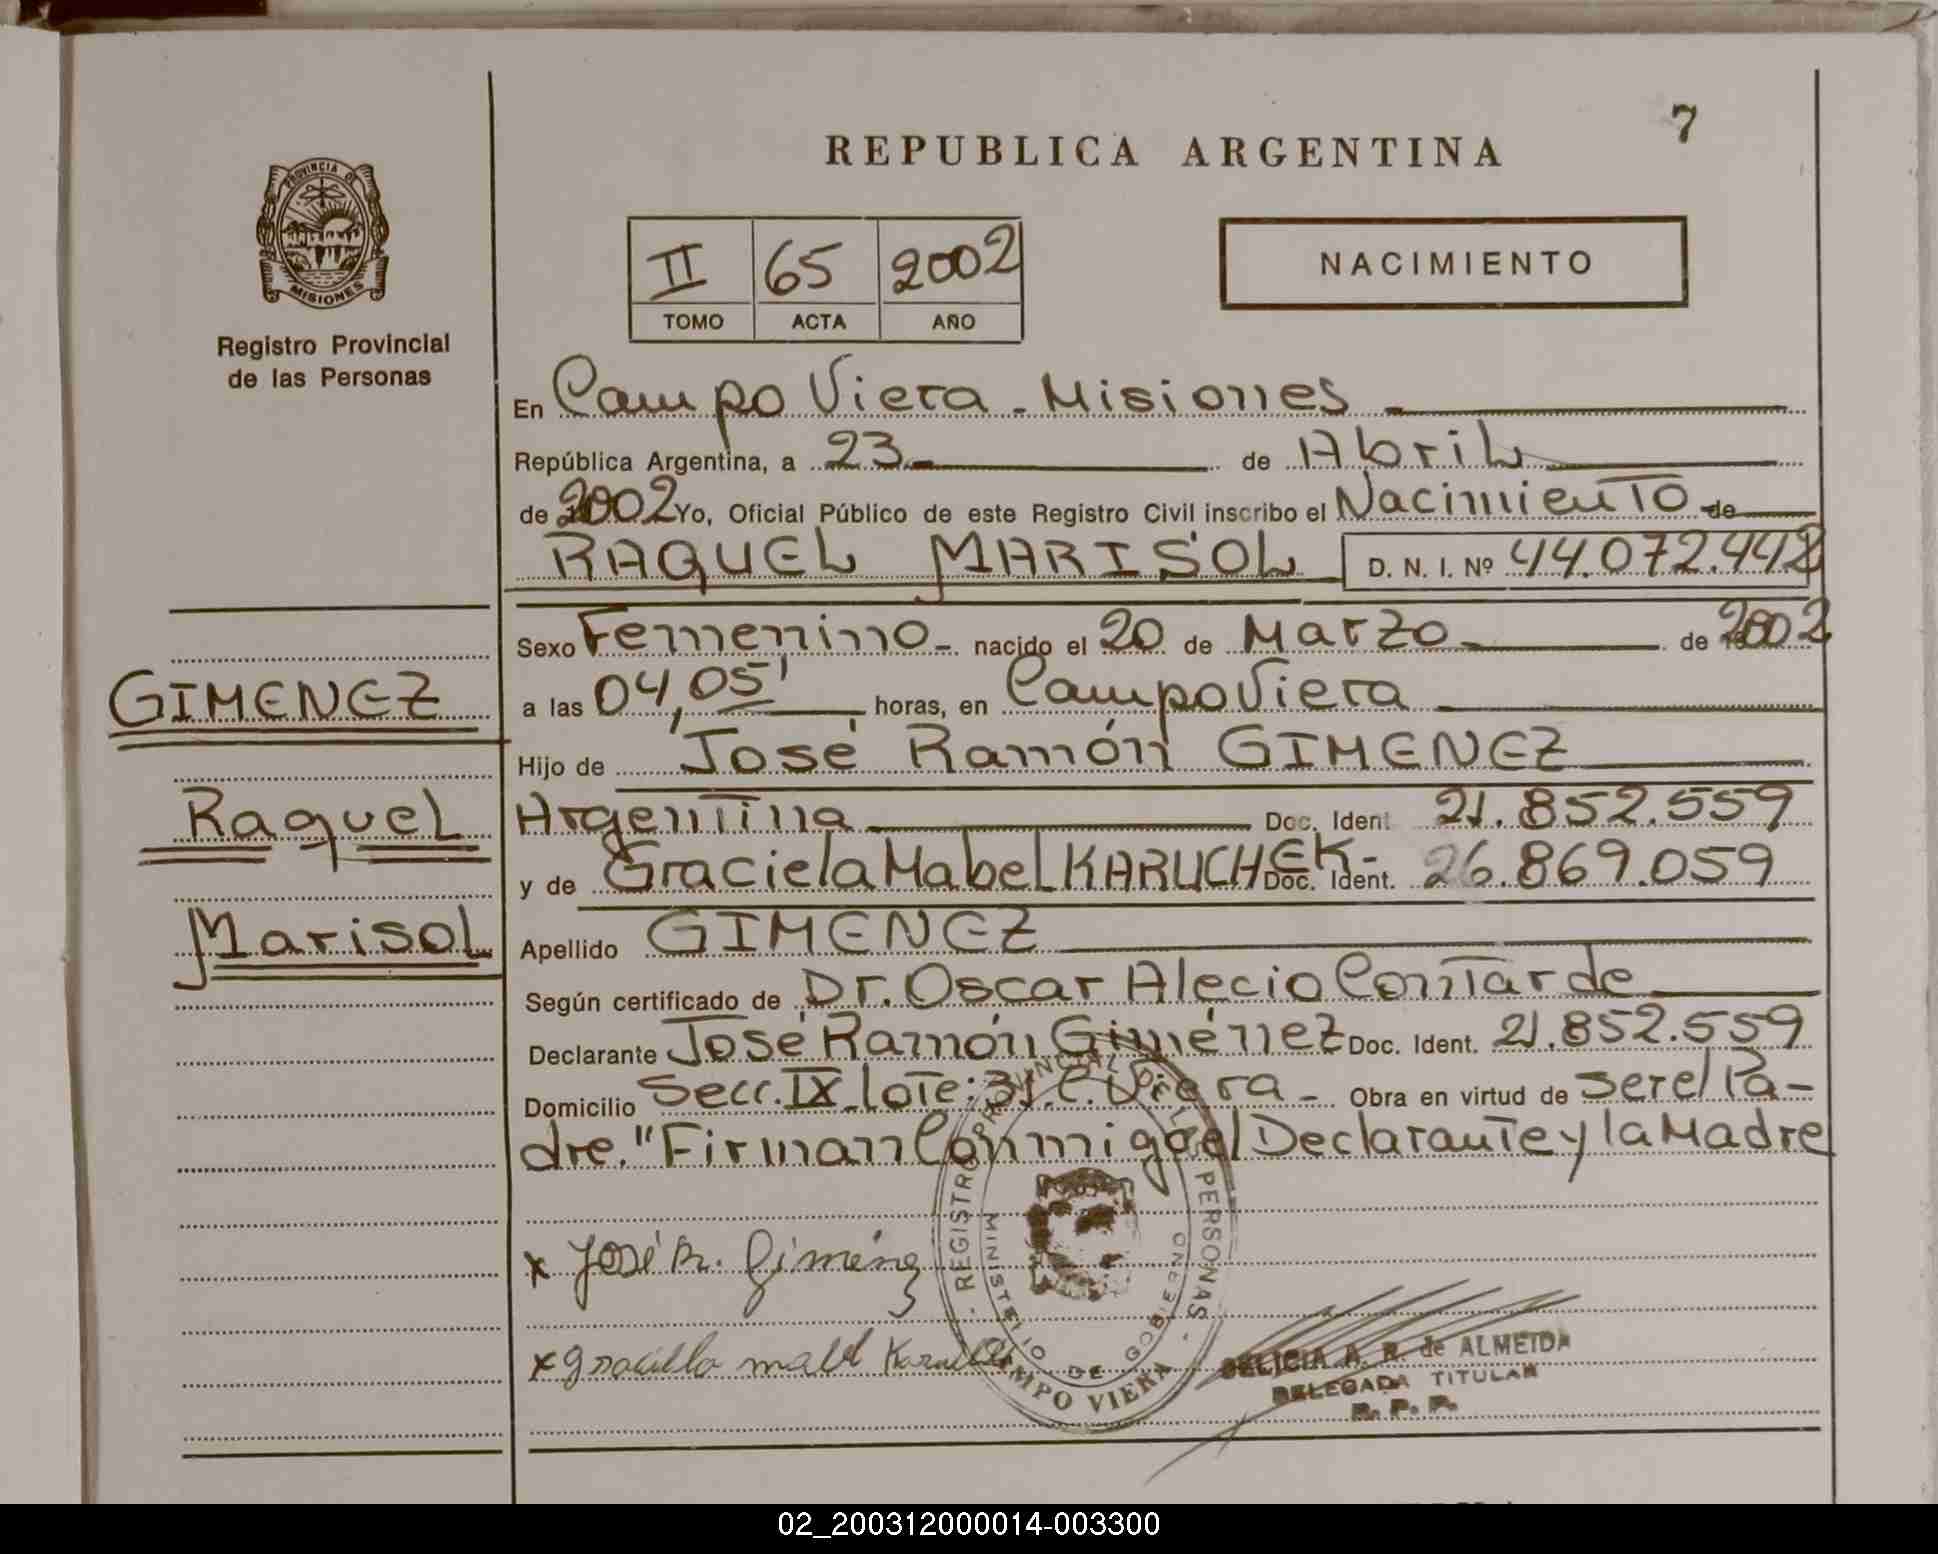 7
REPUBLICA ARGENTINA
PROVINCIA DE
MISIONES
Registro Provincial
de las Personas
II 65 2002
TOMO ACTA AÑO
NACIMIENTO
En Campo Viera - Misiones
República Argentina, a 23 de Abril
de 2002 Yo, Oficial Público de este Registro Civil inscribo el Nacimiento de
RAQUEL MARISOL D. N. I. Nº 44.072.448
Sexo Femenino - nacido el 20 de Marzo de 2002
GIMENEZ
a las 04,05' horas, en Campo Viera
Hijo de José Ramón GIMENEZ
Raquel
Argentina Doc. Ident 21.852.559
y de Graciela Mabel KARUCHEK - Doc. Ident. 26.869.059
Marisol
Apellido GIMENEZ
Según certificado de Dr. Oscar Alecio Contarde
Declarante José Ramón Giménez Doc. Ident. 21.852.559
Domicilio Secc. IX lote: 31. C. Viera - Obra en virtud de ser el Pa-
dre." Firman Conmigo el Declarante y la Madre
REGISTRO PROVINCIAL DE LAS PERSONAS
MINISTERIO DE GOBIERNO
CAMPO VIERA
x José R. Giménez
x graciela mabel
DELICIA A. R. de ALMEIDA
DELEGADA TITULAR
R. P. P.
02_200312000014-003300